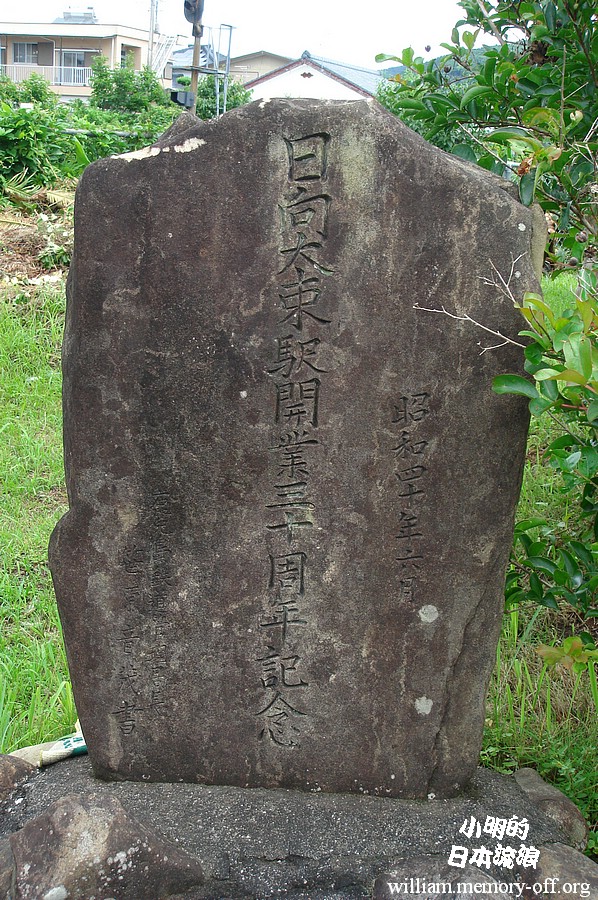 昭和四十年六月
日向大束駅開業三十周年記念
書
小明的
日本流浪
william.memory-off.org